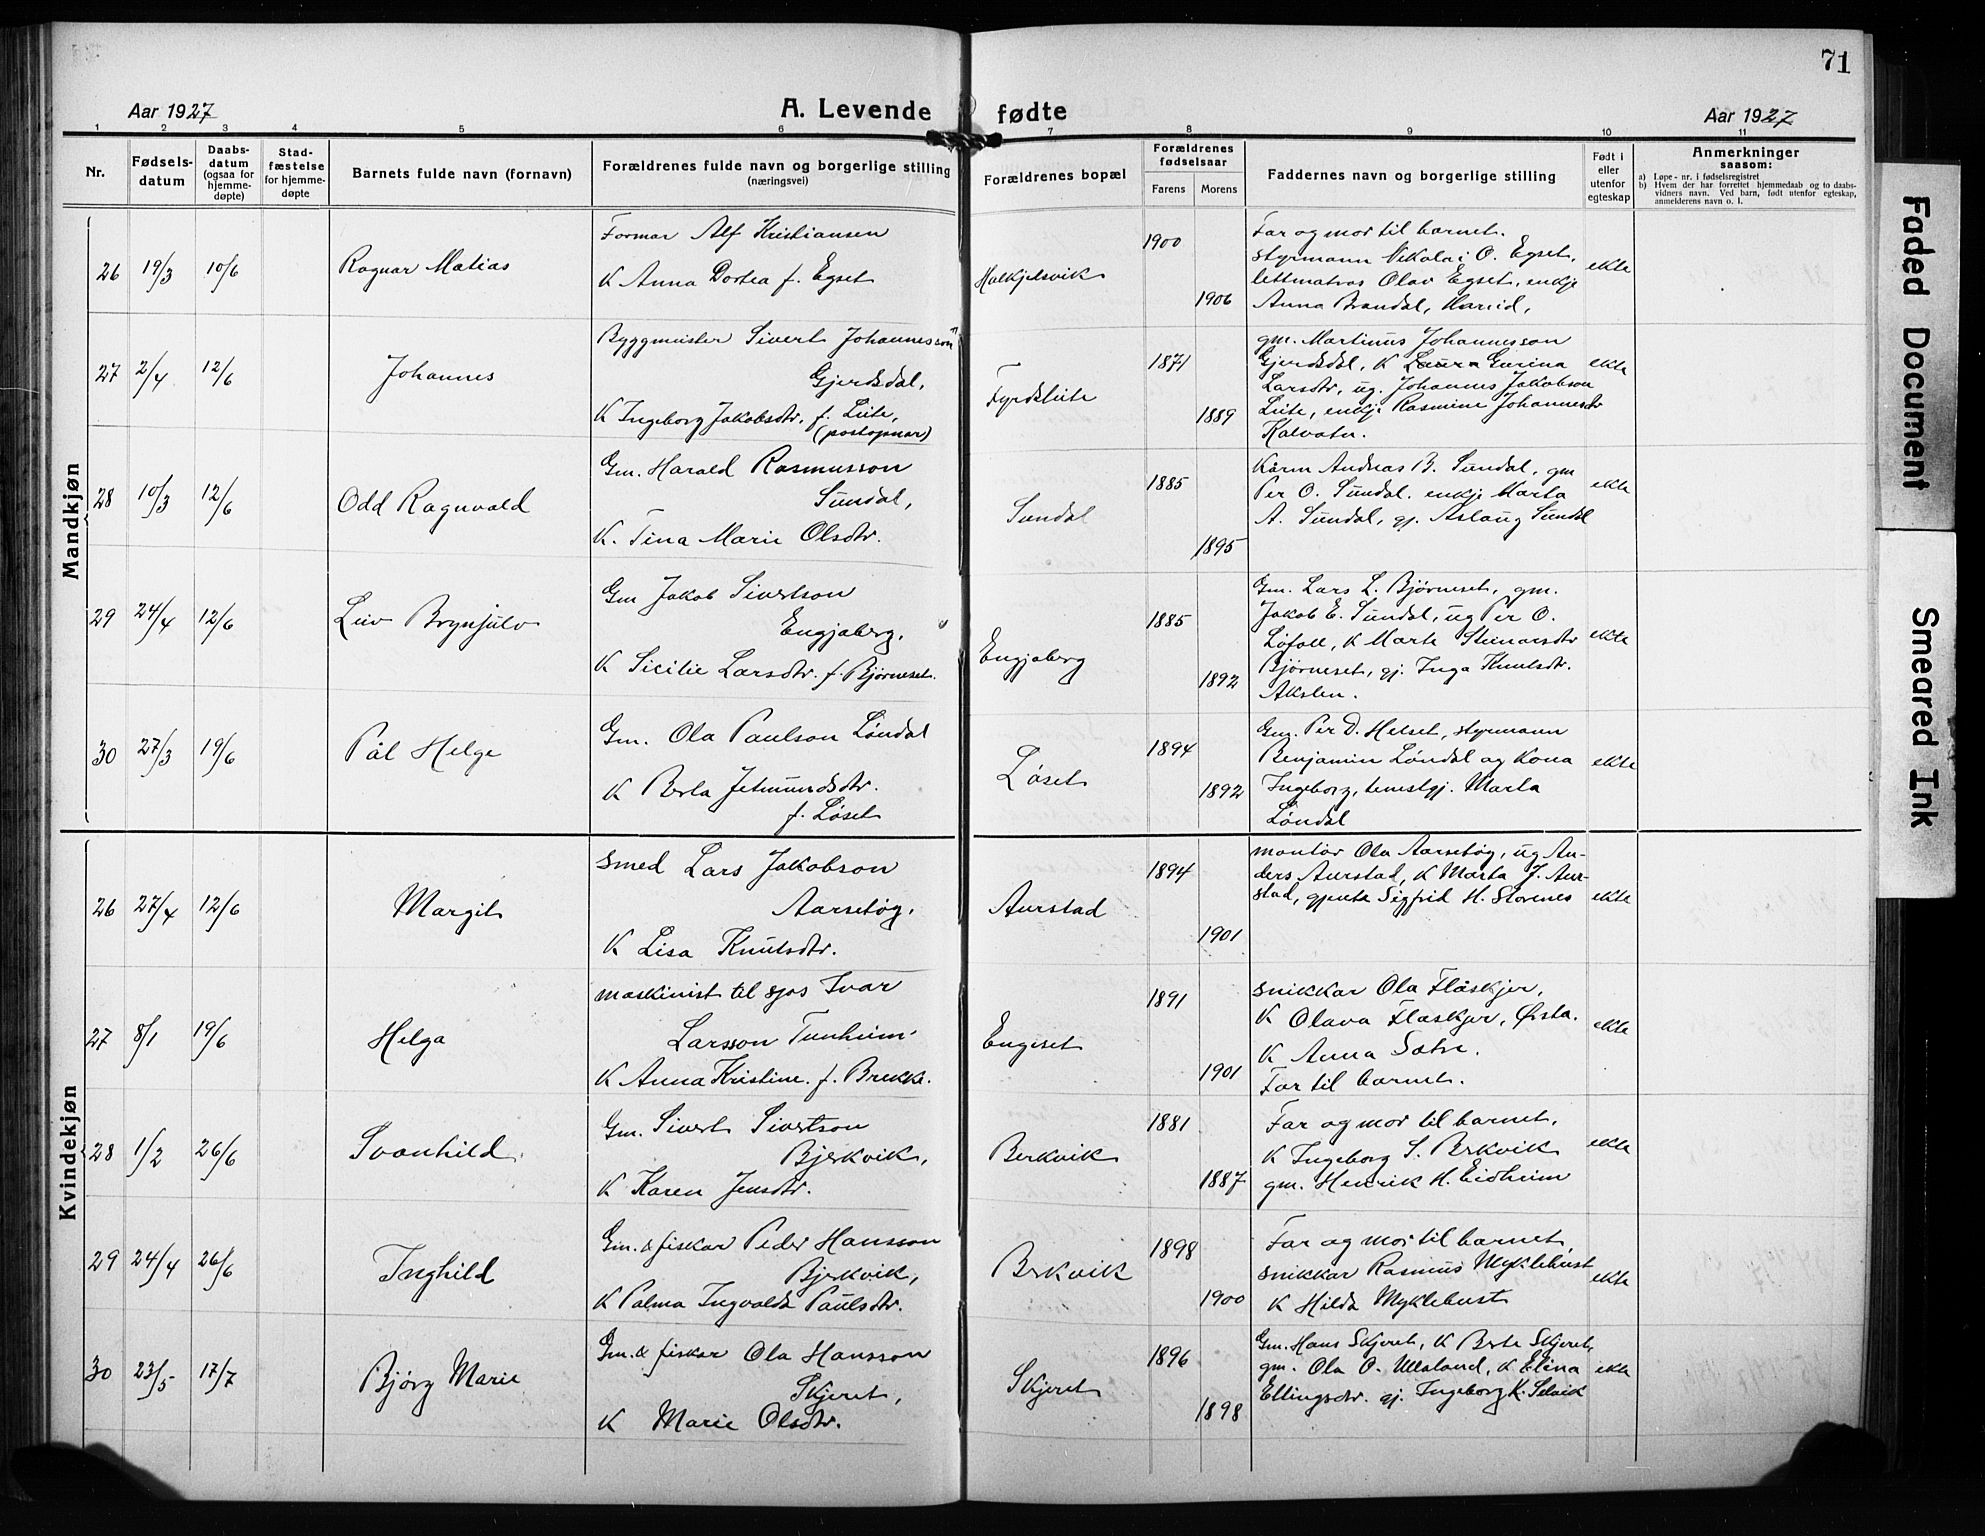 71
Aar 1927
A. Levende fødte
Aar 1927
1 2 3 4 5 6 7 8 9 10 11
Nr.
Fødsels-
datum
Daabs-
datum
(ogsaa for
hjemme-
døpte)
Stad-
fæstelse
for hjemme-
døpte
Barnets fulde navn (fornavn)
Forældrenes fulde navn og borgerlige stilling
(næringsvei)
Forældrenes bopæl
Forældrenes
fødselsaar
Farens Morens
Faddernes navn og borgerlige stilling
Født i
eller
utenfor
egteskap
Anmerkninger
saasom:
a) Løpe-nr. i fødselsregistret
b) Hvem der har forrettet hjemmedaab og to daabs-
vidners navn. Ved barn, født utenfor egteskap,
anmelderens navn o. l.
Mandkjøn
26 19/3 10/6
Ragnar Matias
Formar Alf Kristiansen
K Anna Dortea f. Egset
1900
1906
Far og mor til barnet.
styrmann Nikolai O. Egset,
lettmatros Olav Egset, enkje
Anna Brandal, Hareid,
ekte
27 2/4 12/6
Johannes
Byggmeister Sivert Johannesson
Gjerdsdal,
K Ingeborg Jakobsdtr. f. Leite,
(postopnar)
Fyrdsleite
1871
1889
gm. Martinus Johannesson
Gjerdsdal, K Laura Gurina
Larsdtr, ug. Johannes Jakobson
Leite, enkje Rasmine Johannesdtr
Kalvatn.
ekte
28 10/3 12/6
Odd Ragnvald
Gm. Harald Rasmusson
Sundal,
K. Tina Marie Olsdtr.
Sundal
1885
1895
Kårm Andreas B. Sundal, gm
Per O. Sundal. enkje Marta
A. Sundal, gj. Aslaug Sundal
ekte
29 24/4 12/6
Leiv Brynjulv
Gm Jakob Sivertson
Engjaberg,
K Sicilie Larsdtr. f. Bjørneset.
Engjaberg
1885
1892
Gm. Lars L. Bjørneset, gm.
Jakob E. Sundal, ug Per O.
Løfoll, K Marte Steinarsdtr
Bjørneset, gj. Inga Knutsdtr.
Akslen.
ekte
30 27/3 19/6
Pål Helge
Gm. Ola Paulson Løndal
K Berta Jetmundsdtr.
f. Løset
Løset
1894
1892
Gm. Per D. Helset, styrmann
Benjamin Løndal og Kona
Ingeborg, tenestgj. Marta
Løndal
ekte
Kvindekjøn
26 27/4 12/6
Margit
smed Lars Jakobson
Aarsetøg,
K Lisa Knutsdtr.
Aurstad
1894
1901
montør Ola Aarsetøg, ug An-
ders Aurstad, K Marta J. Aur-
stad, gjenta Sigfrid H. Storenes
ekte
27 8/1 19/6
Helga
maskinist til sjøs Ivar
Larsson Tunheim
K Anna Kristine f. Brekke.
Engeset
1891
1901
snikkar Ola Flåskjer,
K Olava Flaskjer, Ørsta.
K Anna Sætre.
Far til barnet.
ekte
28 1/2 26/6
Svanhild
Gm. Sivert Sivertson
Bjerkvik,
K Karen Jensdtr.
Berkvik
1881
1887
Far og mor til barnet,
K Ingeborg S. Berkvik
gm. Henrik H. Eidheim
ekte
29 24/4 26/6
Inghild
Gm. & fiskar Peder Hansson
Bjerkvik,
K Palma Ingvalda Paulsdtr.
Berkvik
1898
1900
Far og mor til barnet,
snikkar Rasmus Myklebust
K Hilda Myklebust
ekte
30 23/5 17/7
Bjørg Marie
Gm. & fiskar Ola Hansson
Skjeret,
K Marie Olsdtr.
Skjeret
1896
1898
Gm. Hans Skjeret, K Berte Skjeret,
gm. Ola O. Ulleland, K Elina
Ellingsdtr. gj. Ingeborg K. Selvik
ekte
Faded Document
Smeared Ink